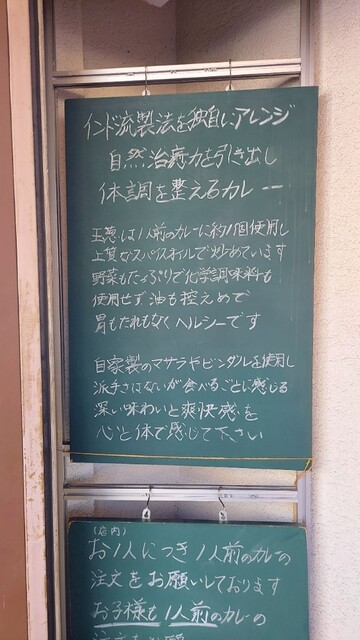 インド流製法を独自にアレンジ
自然治癒力を引き出し
体調を整えるカレー
玉葱は1人前のカレーに約1個使用し
上質なスパイスオイルで炒めています
野菜もたっぷりで化学調味料も
使用せず油も控えめで
胃もたれもなくヘルシーです
自家製のマサラやビンダルを使用し
派手さはないが食べるごとに感じる
深い味わいと爽快感を
心と体で感じて下さい
(店内)
お1人につき1人前のカレーの
注文をお願いしております
お子様も1人前のカレーの